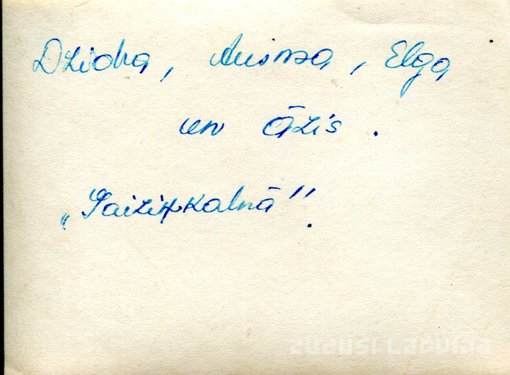 Dzidra, Ausma, Elga
un āzis.
„Gaiziņkalnā”.
zudusi Latvija